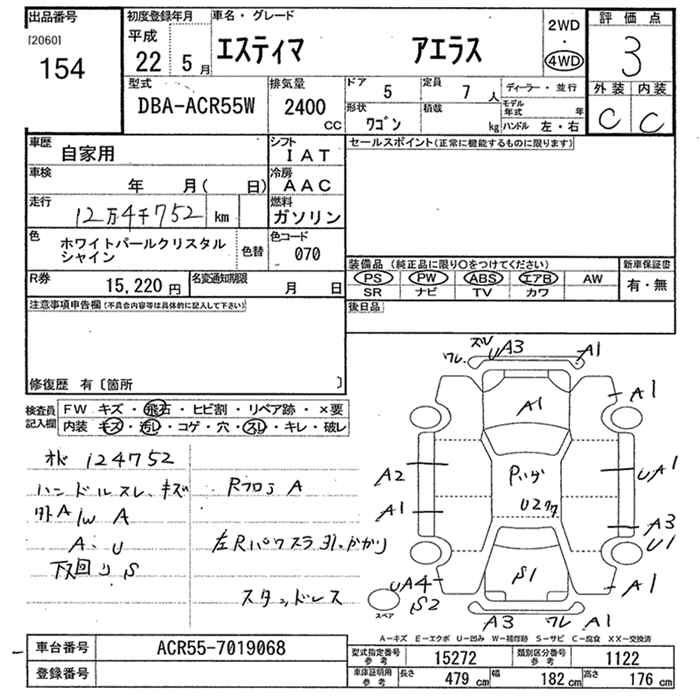 出品番号 初度登録年月 車名・グレード 2WD 評価点
[2060] 平成 ・
154 22 5月 エスティマ アエラス 4WD 3
型式 排気量 ドア 5 定員 7人 ディーラー・並行 外装 内装
DBA-ACR55W 2400cc 形状 ワゴン 積載 kg モデル年式 年 C C
ハンドル 左・右
車歴 自家用 シフト IAT セールスポイント(正常に機能するものに限ります)
車検 年 月( 日) 冷房 AAC
走行 12万4千752 km 燃料 ガソリン
色 ホワイトパールクリスタルシャイン 色替 色コード 070
装備品(純正品に限り〇をつけてください) 新車保証書
R券 15,220円 名変通知期限 月 日 PS PW ABS エアB AW 有・無
SR ナビ TV カワ
注意事項申告欄(不具合内容等は具体的に記入して下さい) 後日品
修復歴 有〔箇所 〕
検査員記入欄 FW キズ・飛石・ヒビ割・リペア跡・×要
内装 キズ・汚レ・コゲ・穴・スレ・キレ・破レ
124752
ハンドルスレ、キズ RフロアA
外A/WA
A、U 左Rパワスラ引っかかり
下回りS
スタッドレス
スレ UA3 A1
ワレ
A1 A1
A2 UA1
U2
A1 A3
U1
UA4 S1 A1
S2
スペア
A3 ワレ A1
A-キズ E-エクボ U-凹み W-補修跡 S-サビ C-腐食 XX-交換済
車台番号 ACR55-7019068 型式指定番号 参考 15272 類別区分番号 参考 1122
登録番号 車庫証明用 参考 長さ 479cm 幅 182cm 高さ 176cm